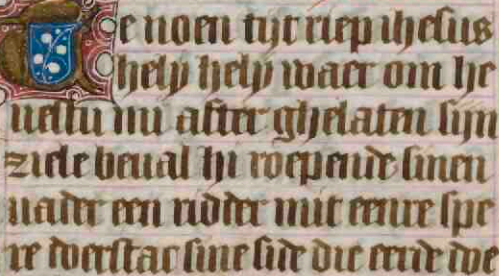 Te noen tijt riep ihesus
hely hely waer om he
uestu mi after ghelaten sijn
ziele beual hi roepende sinen
uader een ridder mit eenre spe
re doerstac sine side die eerde doe